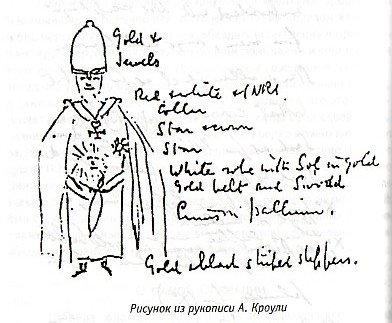 Gold &
Jewels
Red & white
Collar
Star
Star
White robe with Sol in gold
Gold belt and Sword
Crimson pallium.
Gold & black striped slippers.
Рисунок из рукописи А. Кроули